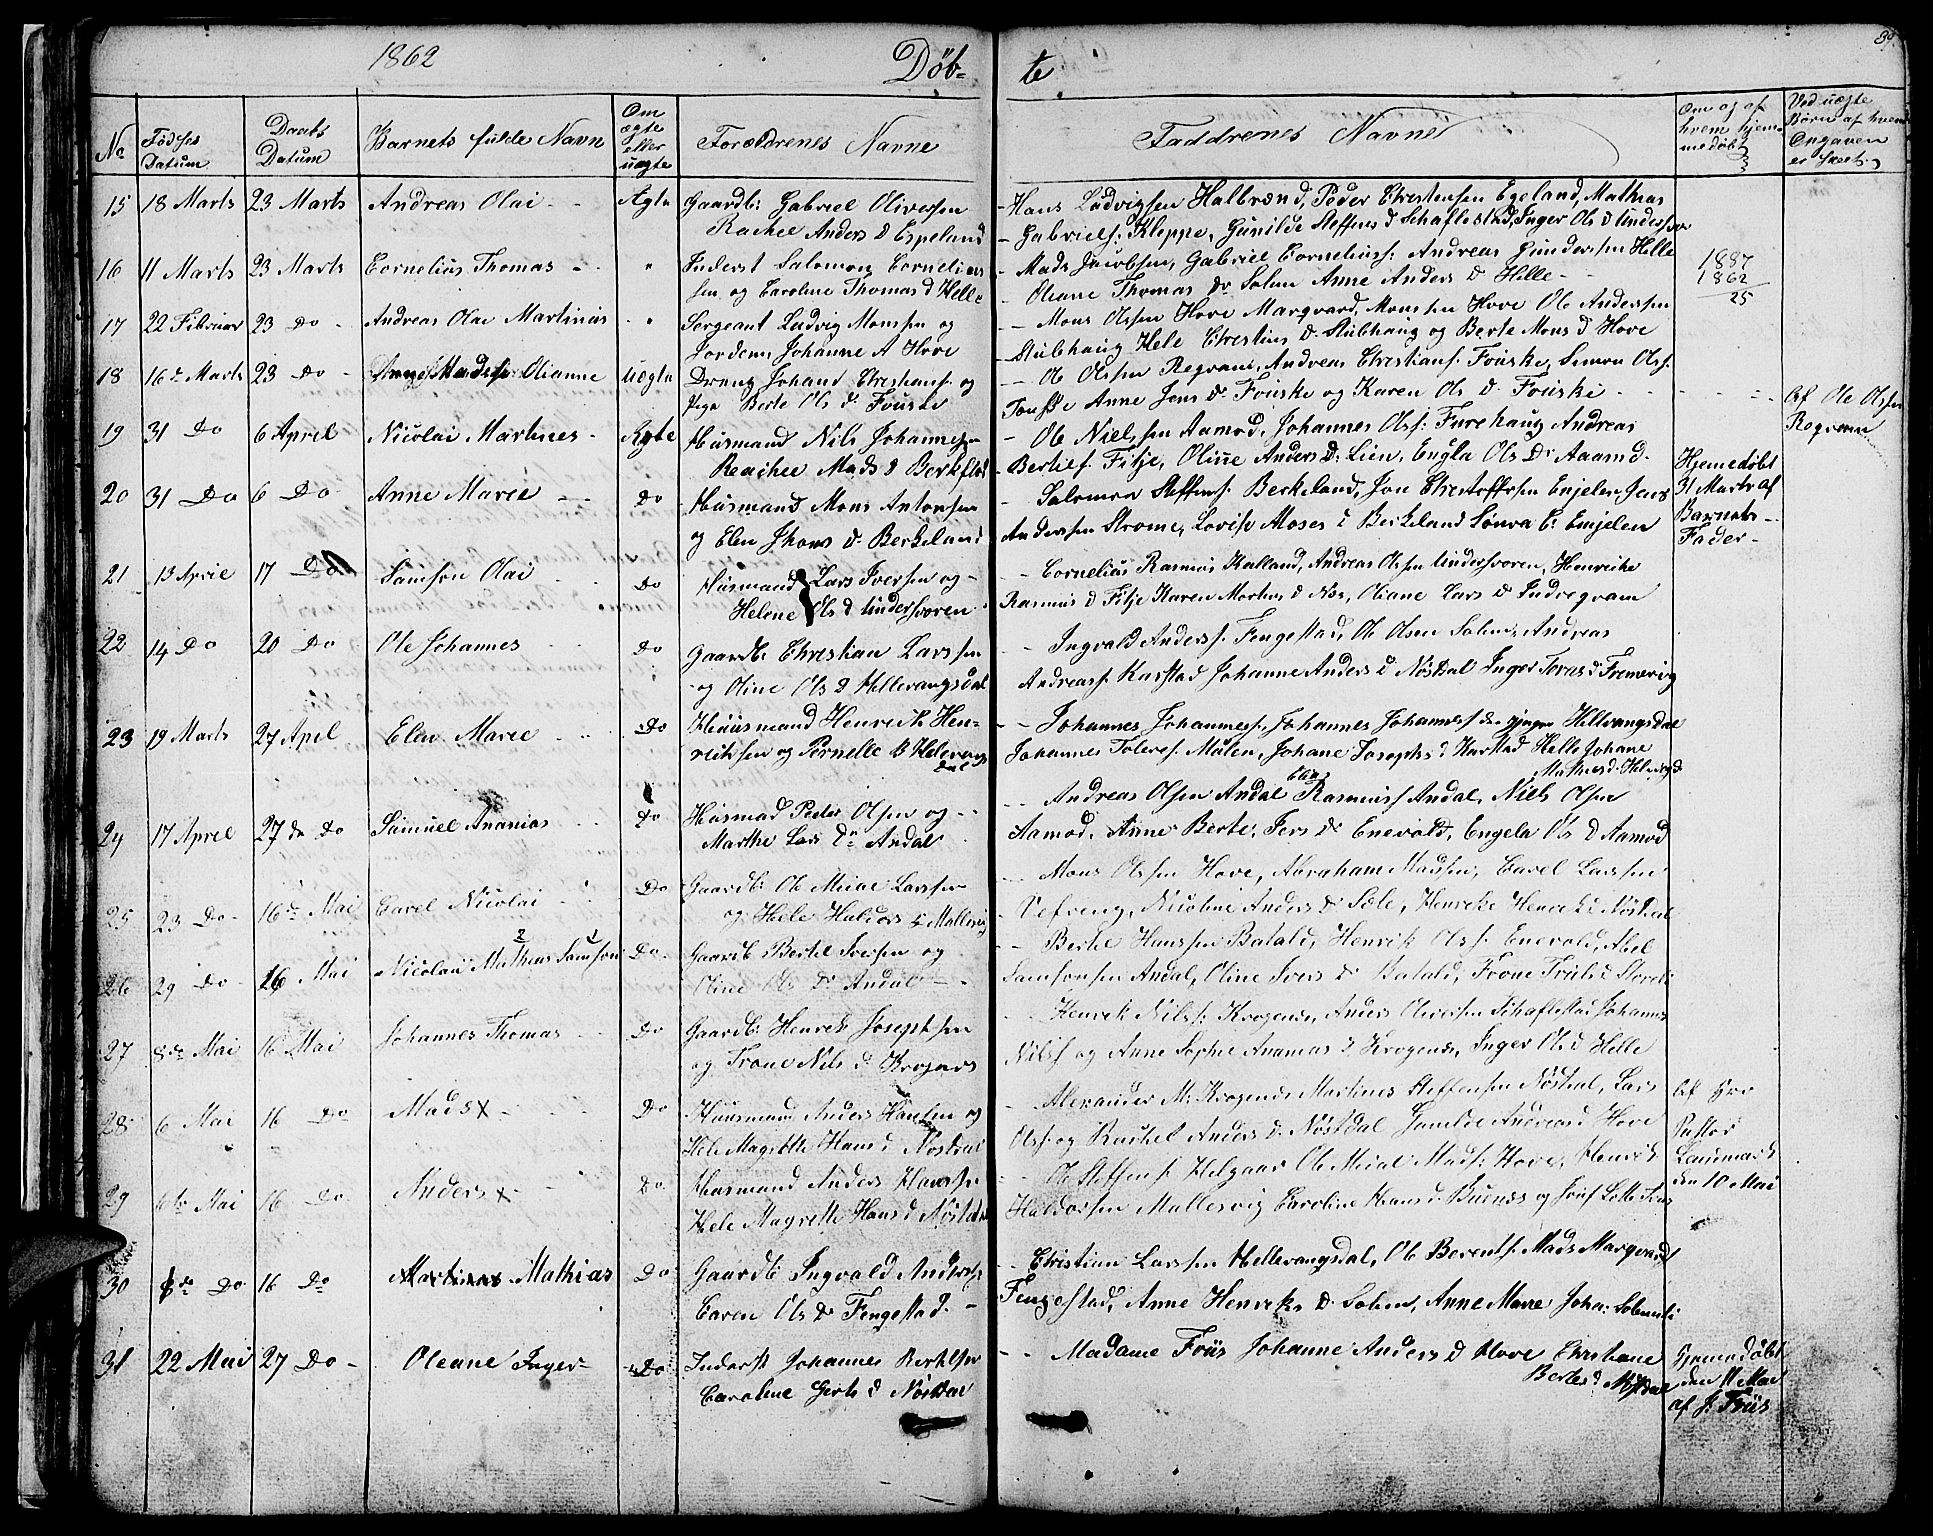 1862 Døb- te 89.
No Fødsels Datum Daabs Datum Barnets fulde Navn Om ægte eller uægte Forældrenes Navne Faddrenes Navne Om og af hvem hjemmedøbt Ved uægte Børn af hvem Opgaven er skeet
15 18 Marts 23 Marts Andreas Olai Ægte Gaardb: Gabriel Oliversen
Rachel Anders D Espeland
Hans Ludvigsen Halbrænd, Peder Christensen Egeland, Mathias
Gabriels: Kleppe, Gunilde Steffens D Schaflestad, Inger Ols D
16 11 Marts 23 Marts Cornelius Thomas " Inderst Salomon Cornelius
sen og Caroline Thomas d Helle
Mads Jacobsen, Gabriel Cornelius: Andreas Gundersen Helle
Oliane Thomas Dr Solem Anne Anders D Helle
1887
1862
25
17 22 Februar 23 Do Andreas Olai Martinus " Sergeant Ludvig Monssen og
Johanne A Hove
Mons Olsen Hove Marqvard Monssen Hove Ole Andersen
Stubhaug Hele Christens D. Stubhaug og Berte Mons d Hove
18 16de Marts 23 Do Olianne Uægte Dreng Johans Christians: og
Pige Berte Ols Dr Fouske
Ole Olsen Regvam, Andreas Christians: Fouske, Simon Ols:
Anne Jens Dr Fouske og Karen Ols D. Fouske
Af Ole Olsen
Regvam
19 31 Do 6 April Nicolai Martines Ægte Husmand Nils Johannes
Rachel Mads D Berkeland
Ole Nielsen Aamod, Johannes Ols: Furehaug Andreas
Bertels: Fitje, Oline Anders D: Lien, Engla Ols Dr Aamod
20 31 Do 6 Do Anne Marie Do Husmand Mons Antonsen
og Elen Jhons D. Berkeland
Salomon Steffens: Berkeland, Jon Christoffersen Enjelen Jens
Andersen Strome, Lovise Moses D Berkeland Enjelen
Hjemedøbt
31 Marts af
Barnets
Fader
21 13 April 17 Do Samson Olai Do Husmand Lars Iversen og
Helene Ols D Undersvoren
Cornelius Rasmus Kalland, Andreas Olsen Undersvoren, Henrike
Rasmus D Fitje Karen Mortens D Nos, Oliane Lars D Indregvam
22 14 Do 20 Do Ole Johannes Do Gaardb: Christian Larssen
og Oline Ols D Hellevangsdal
Ingvald Anders: Fengestad, Ole Olsen Solem, Andreas
Andreass: Karstad Johanne Anders D Nøstdal Inger Toras D
23 19 Marts 27 April Elen Marie Do Huusmand Henrik Hen-
riksen og Pernelle Hellevangs
dal
Johannes Johannes: Johannes Johannes: den Hellevangsdal
Johannes Tolevs: Malen, Johane Josephs D Karstad Helle Johane
24 17 April 27 Do Samuel Ananias Do Husmad Peder Olsen og
Marthe Lars Dr Andal
Andreas Olsen Andal Elias Rasmuss: Andal, Niels Olsen
Aamod, Anne Berte, Jens Dr Enevald, Engela Ols D Aamod
25 23 Do 16de Mai Carel Nicolai Do Gaardb: Ole Mical Larssen
og Hele Haldors D Mallesvig
Mons Olssen Hove, Abraham Madsen, Carel Larssen
Vefreng, Nicoline Anders D Sole, Henrike Henriks Nøstdal
26 29 Do 16 Mai Nicolai Mathias Samson Do Gaardb Bertel Iversen og
Oline Ols D Andal
Berthe Hanssen Batald, Henrik Ols: Enevald, Abel
Samsonsen Andal, Oline Ivers Dr Batald,
27 8de Mai 16 Mai Johannes Thomas Do Gaardb: Henrik Josephsen
og Trone Nils D Krogenes
Henrik Nilss: Krogenes, Anders Oliversen Schaflestad Johannes
Nilss og Anne Sophie Ananias D Krogenes, Inger Ols D Helle
28 6 Mai 16 Do Mads x Do Huusmand Anders Hansen og
Hele Magrethe Hans D Nøstdal
Alexander M: Krogenes Martines Steffensen Nøstdal, Lars
Ols: og Rachel Anders D. Nøstdal Andreas D Hove
Af Hrr
Pastor
Landmark
den 10 Mai
29 6te Mai 16 Do Anders x Do Husmand Anders Hanssen
Hele Magrette Hans D Nøstdal
Ole Steffens: Helgaas Ole Mical Mads: Hove, Henrik
Haldorsen Mallesvig Caroline Hans D.
30 Do 16 Do Martinus Mathias Do Gaardb: Ingvald Anders:
Caren Ols Dr Fengestad
Christian Larssen Hellevangsdal, Ole Berents: Mads Marqvard
Fengestad, Anne Henriks D. Solem, Anne Marie
31 22 Mai 27 Do Oleane Inger Do Inderst Johannes Bertelsen
Caroline Gerts D Nøstdal
Madame Friis Johanne Anders D Hove Christiane
Bertes D Nøstdal
Hjemmedøbt
den 11 Mai
af J. Friis